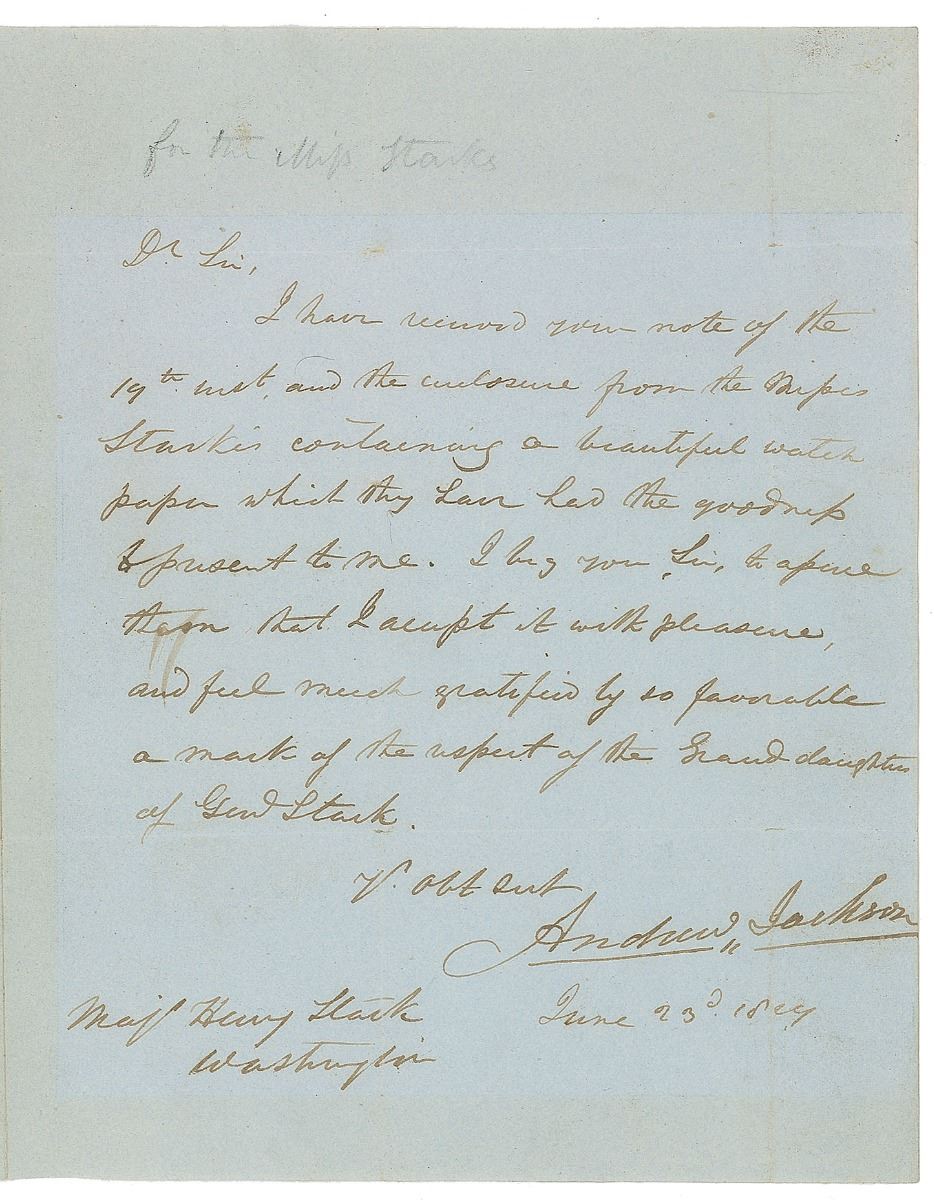 for the Miss Starks
Dr Sir,
I have received your note of the
19th inst, and the enclosure from the Misses
Starkes containing a beautiful watch
paper which they have had the goodness
to present to me. I beg you, Sir, to assure
them that I accept it with pleasure,
and feel much gratified by so favorable
a mark of the respect of the Grand daughters
of Genl Stark.
Yr obt Svt
Andrew Jackson
Majr Henry Stark June 23d. 1829
Washington